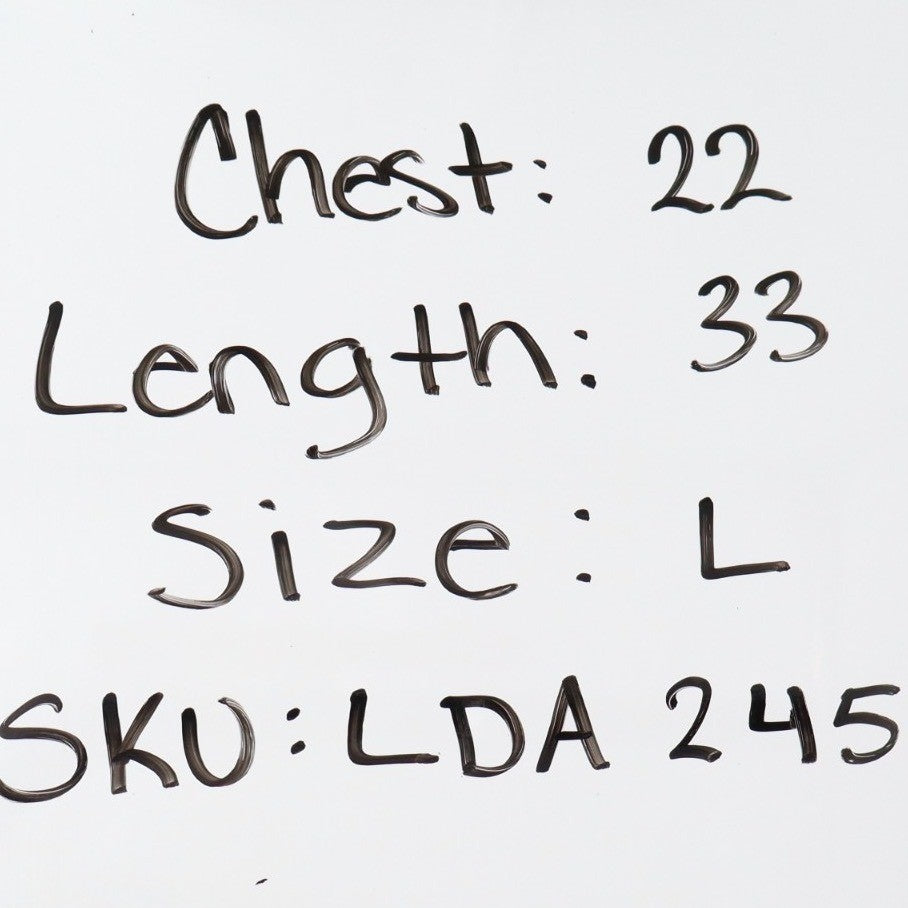 Chest: 22
Length: 33
Size: L
SKU: LDA 245